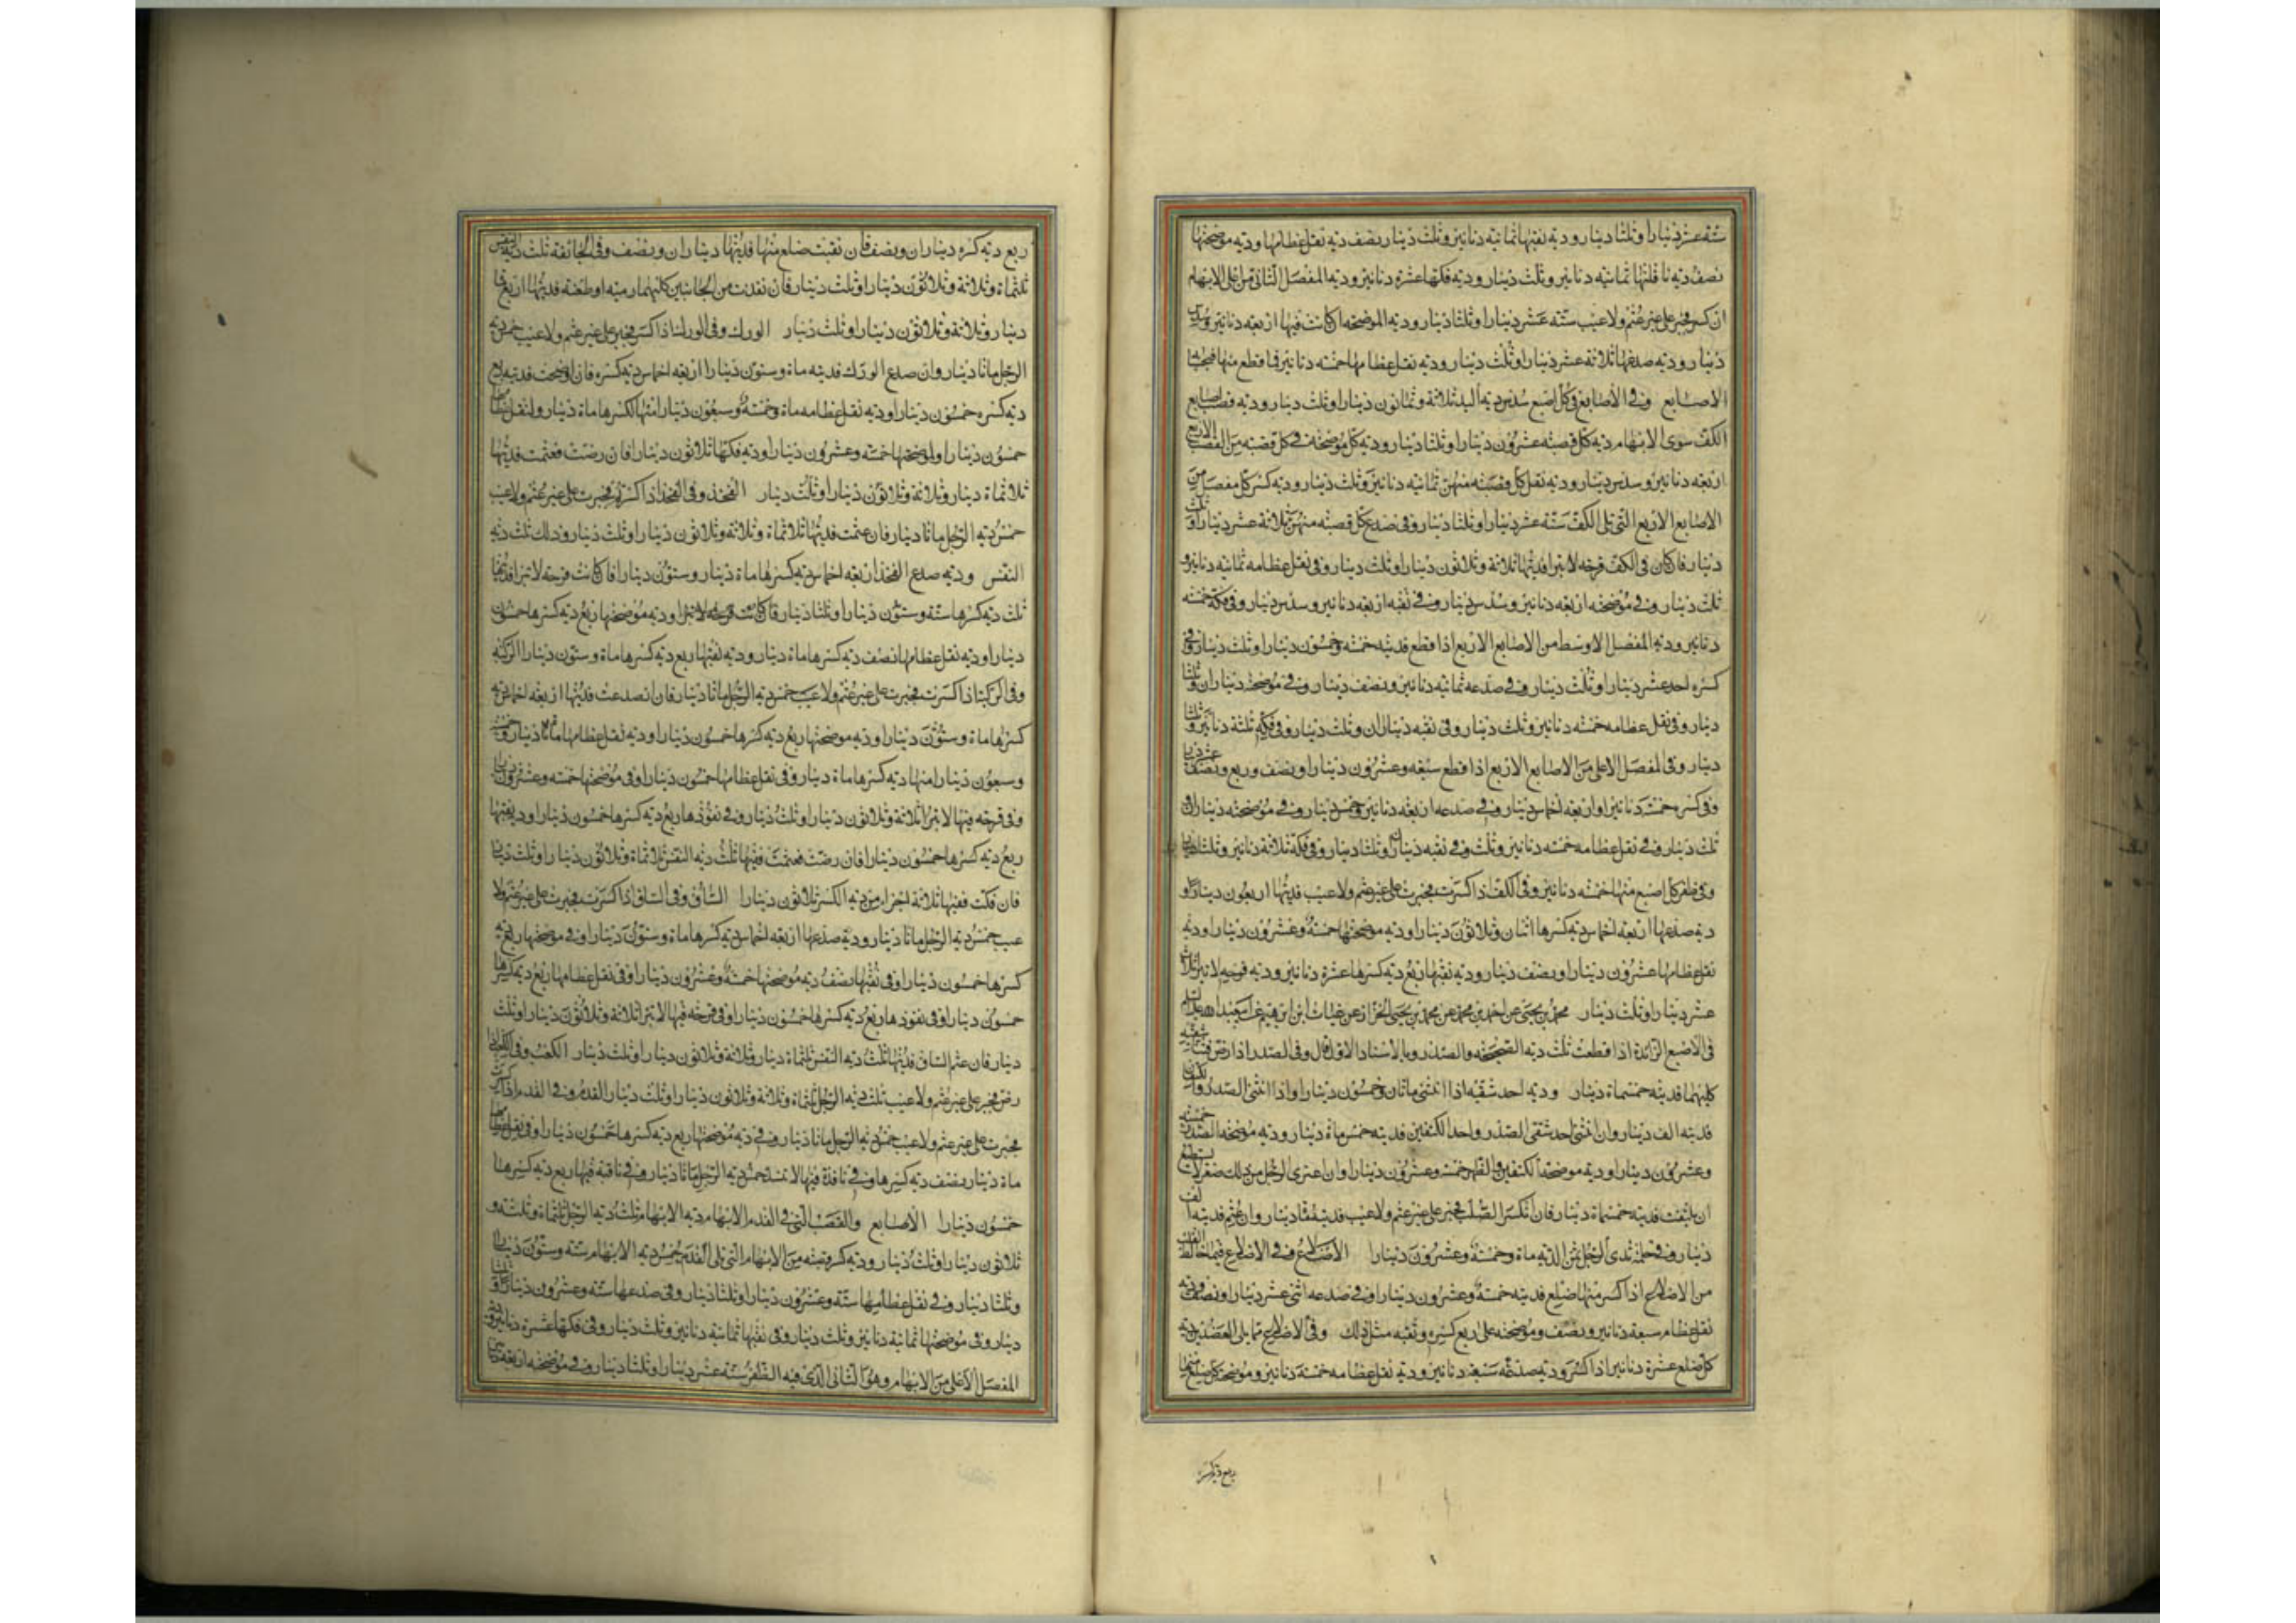 ستة عشر دينارا وثلثا دينار ودية نقبها ثمانية دنانير وثلث دينار نصف دية نقل عظامها ودية موضحتها
نصف دية ناقلتها ثمانية دنانير وثلث دينار ودية فكها عشرة دنانير ودية المفصل الثاني من اعلى الابهام
ان كسر فجبر على غير عثم ولا عيب ستة عشر دينارا وثلثا دينار ودية الموضحة ان كانت فيها اربعة دنانير وسدس
دينار ودية صدعها ثلاثة عشر دينارا وثلث دينار ودية نقل عظامها خمسة دنانير فما قطع منها فبحسابه
الاصابع وفي الاصابع في كل اصبع سدس دية اليد ثلاثة وثمانون دينارا وثلث دينار ودية قصب اصابع
الكف سوى الابهام دية كل قصبة عشرون دينارا وثلثا دينار ودية كل موضحة في كل قصبة من القصب الاربع
اربعة دنانير وسدس دينار ودية نقل كل قصبة منهن ثمانية دنانير وثلث دينار ودية كسر كل مفصل من
الاصابع الاربع التي تلي الكف ستة عشر دينارا وثلثا دينار وفي صدع كل قصبة منهن ثلاثة عشر دينارا وثلث
دينار فان كان في الكف قرحة لا تبرا فديتها ثلاثة وثلاثون دينارا وثلث دينار وفي نقل عظامه ثمانية دنانير و
ثلث دينار وفي موضحته اربعة دنانير وسدس دينار وفي نقبه اربعة دنانير وسدس دينار وفي فكه خمسة
دنانير ودية المفصل الاوسط من الاصابع الاربع اذا قطع فديته خمسة وخمسون دينارا وثلث دينار وفي
كسره احد عشر دينارا وثلث دينار وفي صدعه ثمانية دنانير ونصف دينار وفي موضحته ديناران وثلثا
دينار وفي نقل عظامه خمسة دنانير وثلث دينار وفي نقبه ديناران وثلث دينار وفي فكه ثلثة دنانير وثلثا
دينار وفي المفصل الاعلى من الاصابع الاربع اذا قطع سبعة وعشرون دينارا ونصف وربع ونصف عشر دينار
وفي كسره خمسة دنانير واربعة اخماس دينار وفي صدعه اربعة دنانير وخمس دينار وفي موضحته ديناران و
ثلث دينار وفي نقل عظامه خمسة دنانير وثلث وفي نقبه ديناران وثلثا دينار وفي فكه ثلاثة دنانير وثلثا دينار
وفي ظفر كل اصبع منها خمسة دنانير وفي الكف اذا كسرت فجبرت على غير عثم ولا عيب فديتها اربعون دينارا و
دية صدعها اربعة اخماس دية كسرها اثنان وثلاثون دينارا ودية موضحتها خمسة وعشرون دينارا ودية
نقل عظامها عشرون دينارا ونصف دينار ودية نقبها ربع دية كسرها عشرة دنانير ودية قرحة لا تبرا ثلاثة
عشر دينارا وثلث دينار محمد بن يحيى عن احمد بن محمد عن محمد بن يحيى الخزاز عن غياث بن ابرهيم عن ابي عبد الله عليه السلم
في الاصبع الزائدة اذا قطعت ثلث دية الصحيحة والصدر وبالاسناد الاول قال وفي الصدر اذا رض فثنى شقيه
كليهما فديته خمسماة دينار ودية احد شقيه اذا انثنى ماتان وخمسون دينارا واذا انثنى الصدر والكتفان
فديته الف دينار وان انثنى احد شقي الصدر واحد الكتفين فديته خمس ماة دينار ودية موضحة الصدر خمسة
وعشرون دينارا ودية موضحة الكتفين والظهر خمسة وعشرون دينارا وان اعترى الرجل من ذلك صعر لا يستطيع
ان يلتفت فديته خمسماة دينار فان انكسر الصلب فجبر على غير عثم ولا عيب فديته ماة دينار وان عثم فديته الف
دينار وفي حلمة ثدي الرجل ثمن الدية ماة وخمسة وعشرون دينارا الاضلاع وفي الاضلاع فيما خالط القلب
من الاضلاع اذا كسر منها ضلع فديته خمسة وعشرون دينارا وفي صدعه اثنى عشر دينارا ونصف ودية
نقل عظامه سبعة دنانير ونصف وموضحته على ربع كسره ونقبه مثل ذلك وفي الاضلاع مما يلي العضدين دية
كل ضلع عشرة دنانير اذا كسر ودية صدعه سبعة دنانير ودية نقل عظامه خمسة دنانير وموضحة كل ضلع منها
ربع دية كسره
ربع دية كسره ديناران ونصف فان نقبت ضلع منها فديتها ديناران ونصف وفي الجائفة ثلث دية النفس
ثلثماة وثلاثة وثلاثون دينارا وثلث دينار فان نفذت من الجانبين كليهما رمية او طعنة فديتها اربعماة
دينار وثلاثة وثلاثون دينارا وثلث دينار الورك وفي الورك اذا كسر فجبر على غير عثم ولا عيب خمس دية
الرجل ماتا دينار وان صدع الورك فديته ماة وستون دينارا اربعة اخماس دية كسره فان اوضحت فديته ربع
دية كسره خمسون دينارا ودية نقل عظامه ماة وخمسة وسبعون دينارا منها لكسرها ماة دينار ولنقل عظامها
خمسون دينارا ولموضحتها خمسة وعشرون دينارا ودية فكها ثلاثون دينارا فان رضت فعثمت فديتها
ثلاثماة دينار وثلاثة وثلاثون دينارا وثلث دينار الفخذ وفي الفخذ اذا كسرت فجبرت على غير عثم ولا عيب
خمس دية الرجل ماتا دينار فان عثمت فديتها ثلاثماة وثلاثة وثلاثون دينارا وثلث دينار وذلك ثلث دية
النفس ودية صدع الفخذ اربعة اخماس دية كسرها ماة دينار وستون دينارا فان كانت قرحة لا تبرا فديتها
ثلث دية كسرها ستة وستون دينارا وثلثا دينار ودية موضحتها ربع دية كسرها خمسون
دينارا ودية نقل عظامها نصف دية كسرها ماة دينار ودية نقبها ربع دية كسرها ماة وستون دينارا الركبة
وفي الركبة اذا كسرت فجبرت على غير عثم ولا عيب خمس دية الرجل ماتا دينار فان انصدعت فديتها اربعة اخماس دية
كسرها ماة وستون دينارا ودية موضحتها ربع دية كسرها خمسون دينارا ودية نقل عظامها ماة دينار وخمسة
وسبعون دينارا منها دية كسرها ماة دينار وفي نقل عظامها خمسون دينارا وفي موضحتها خمسة وعشرون دينارا
وفي قرحة فيها لا تبرا ثلاثة وثلاثون دينارا وثلث دينار وفي نفوذها ربع دية كسرها خمسون دينارا ودية نقبها
ربع دية كسرها خمسون دينارا فان رضت فعثمت ففيها ثلث دية النفس ثلاثماة وثلاثون دينارا وثلث دينار
فان فكت ففيها ثلاثة اجزاء من دية الكسر ثلاثون دينارا الساق وفي الساق اذا كسرت فجبرت على غير عثم ولا
عيب خمس دية الرجل ماتا دينار ودية صدعها اربعة اخماس دية كسرها ماة وستون دينارا وفي موضحتها ربع دية
كسرها خمسون دينارا وفي نقبها نصف دية موضحتها خمسة وعشرون دينارا وفي نقل عظامها ربع دية كسرها
خمسون دينارا وفي نفوذها ربع دية كسرها خمسون دينارا وفي قرحة فيها لا تبرا ثلاثة وثلاثون دينارا وثلث
دينار فان عثم الساق فديتها ثلث دية النفس ثلثماة دينار وثلاثة وثلاثون دينارا وثلث دينار الكعب وفي الكعب اذا
رض فجبر على غير عثم ولا عيب ثلث دية الرجل ثلثماة وثلاثة وثلاثون دينارا وثلث دينار القدم وفي القدم اذا كسرت
فجبرت على غير عثم ولا عيب خمس دية الرجل ماتا دينار وفي دية موضحتها ربع دية كسرها خمسون دينارا وفي نقل عظامها
ماة دينار نصف دية كسرها وفي نافذة فيها لا تنسد خمس دية الرجل ماتا دينار وفي ناقبة فيها ربع دية كسرها
خمسون دينارا الاصابع والقصب التي في القدم الابهام دية الابهام ثلث دية الرجل ثلثماة وثلثة و
ثلاثون دينارا وثلث دينار ودية كسر قصبة من الابهام التي تلي القدم خمس دية الابهام ستة وستون دينارا
وثلثا دينار وفي نقل عظامها ستة وعشرون دينارا وثلثا دينار وفي صدعها ستة وعشرون دينارا وثلثا
دينار وفي موضحتها ثمانية دنانير وثلث دينار وفي نقبها ثمانية دنانير وثلث دينار وفي فكها عشرة دنانير ودية
المفصل الاعلى من الابهام وهو الثاني الذي فيه الظفر ستة عشر دينارا وثلثا دينار وفي موضحته اربعة دنانير